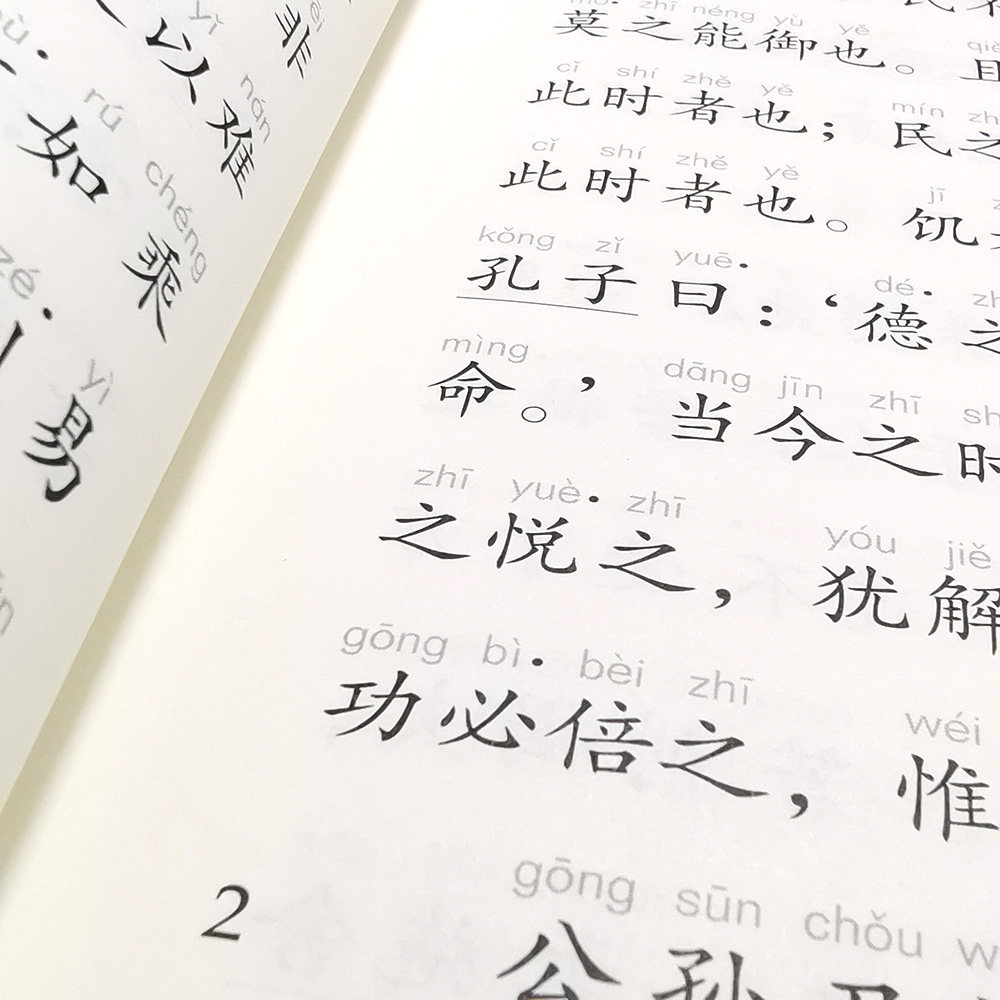 非
yǐ nán
以难
rú chéng
如乘
yì
易
zhī néng yù yě
莫之能御也。且
cǐ shí zhě yě mín
此时者也；民之
cǐ shí zhě yě jī
此时者也。饥
kǒng zǐ yuē· dé·
孔子曰：‘德之
mìng dāng jīn zhī
命。’当今之时
zhī yuè· zhī yóu jiě
之悦之，犹解
gōng bì· bèi zhī wéi
功必倍之，惟
gōng sūn chǒu
2 公孙丑